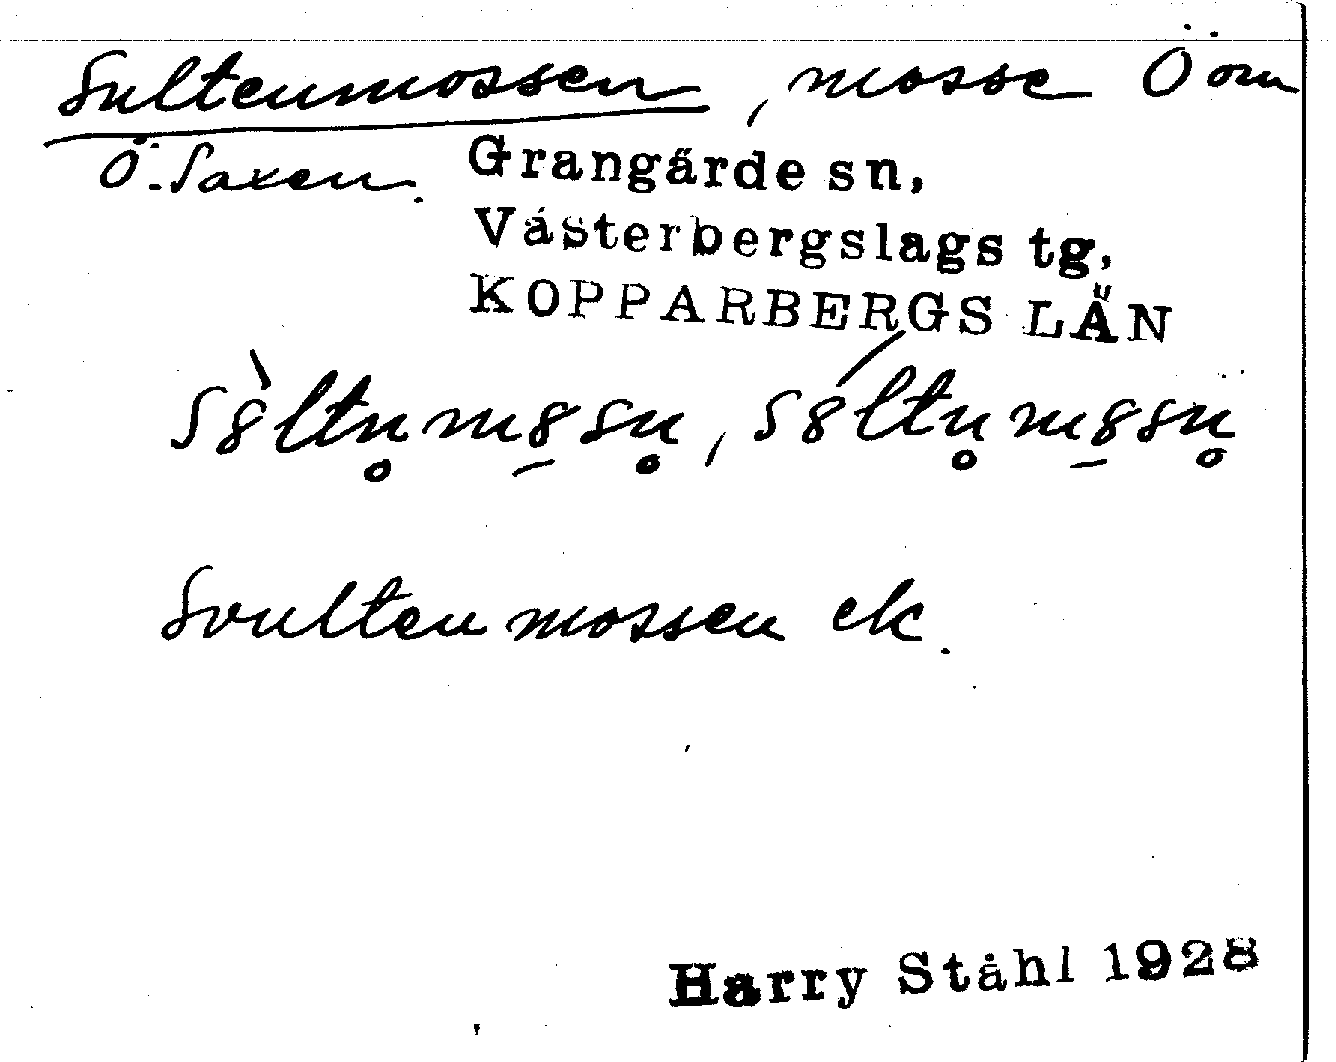 Sultenmossen, mosse Ö om
Ö. Saxen.
Grangärde sn,
Västerbergslags tg,
KOPPARBERGS LÄN
Svultenmossen ek.
Harry Ståhl 1928